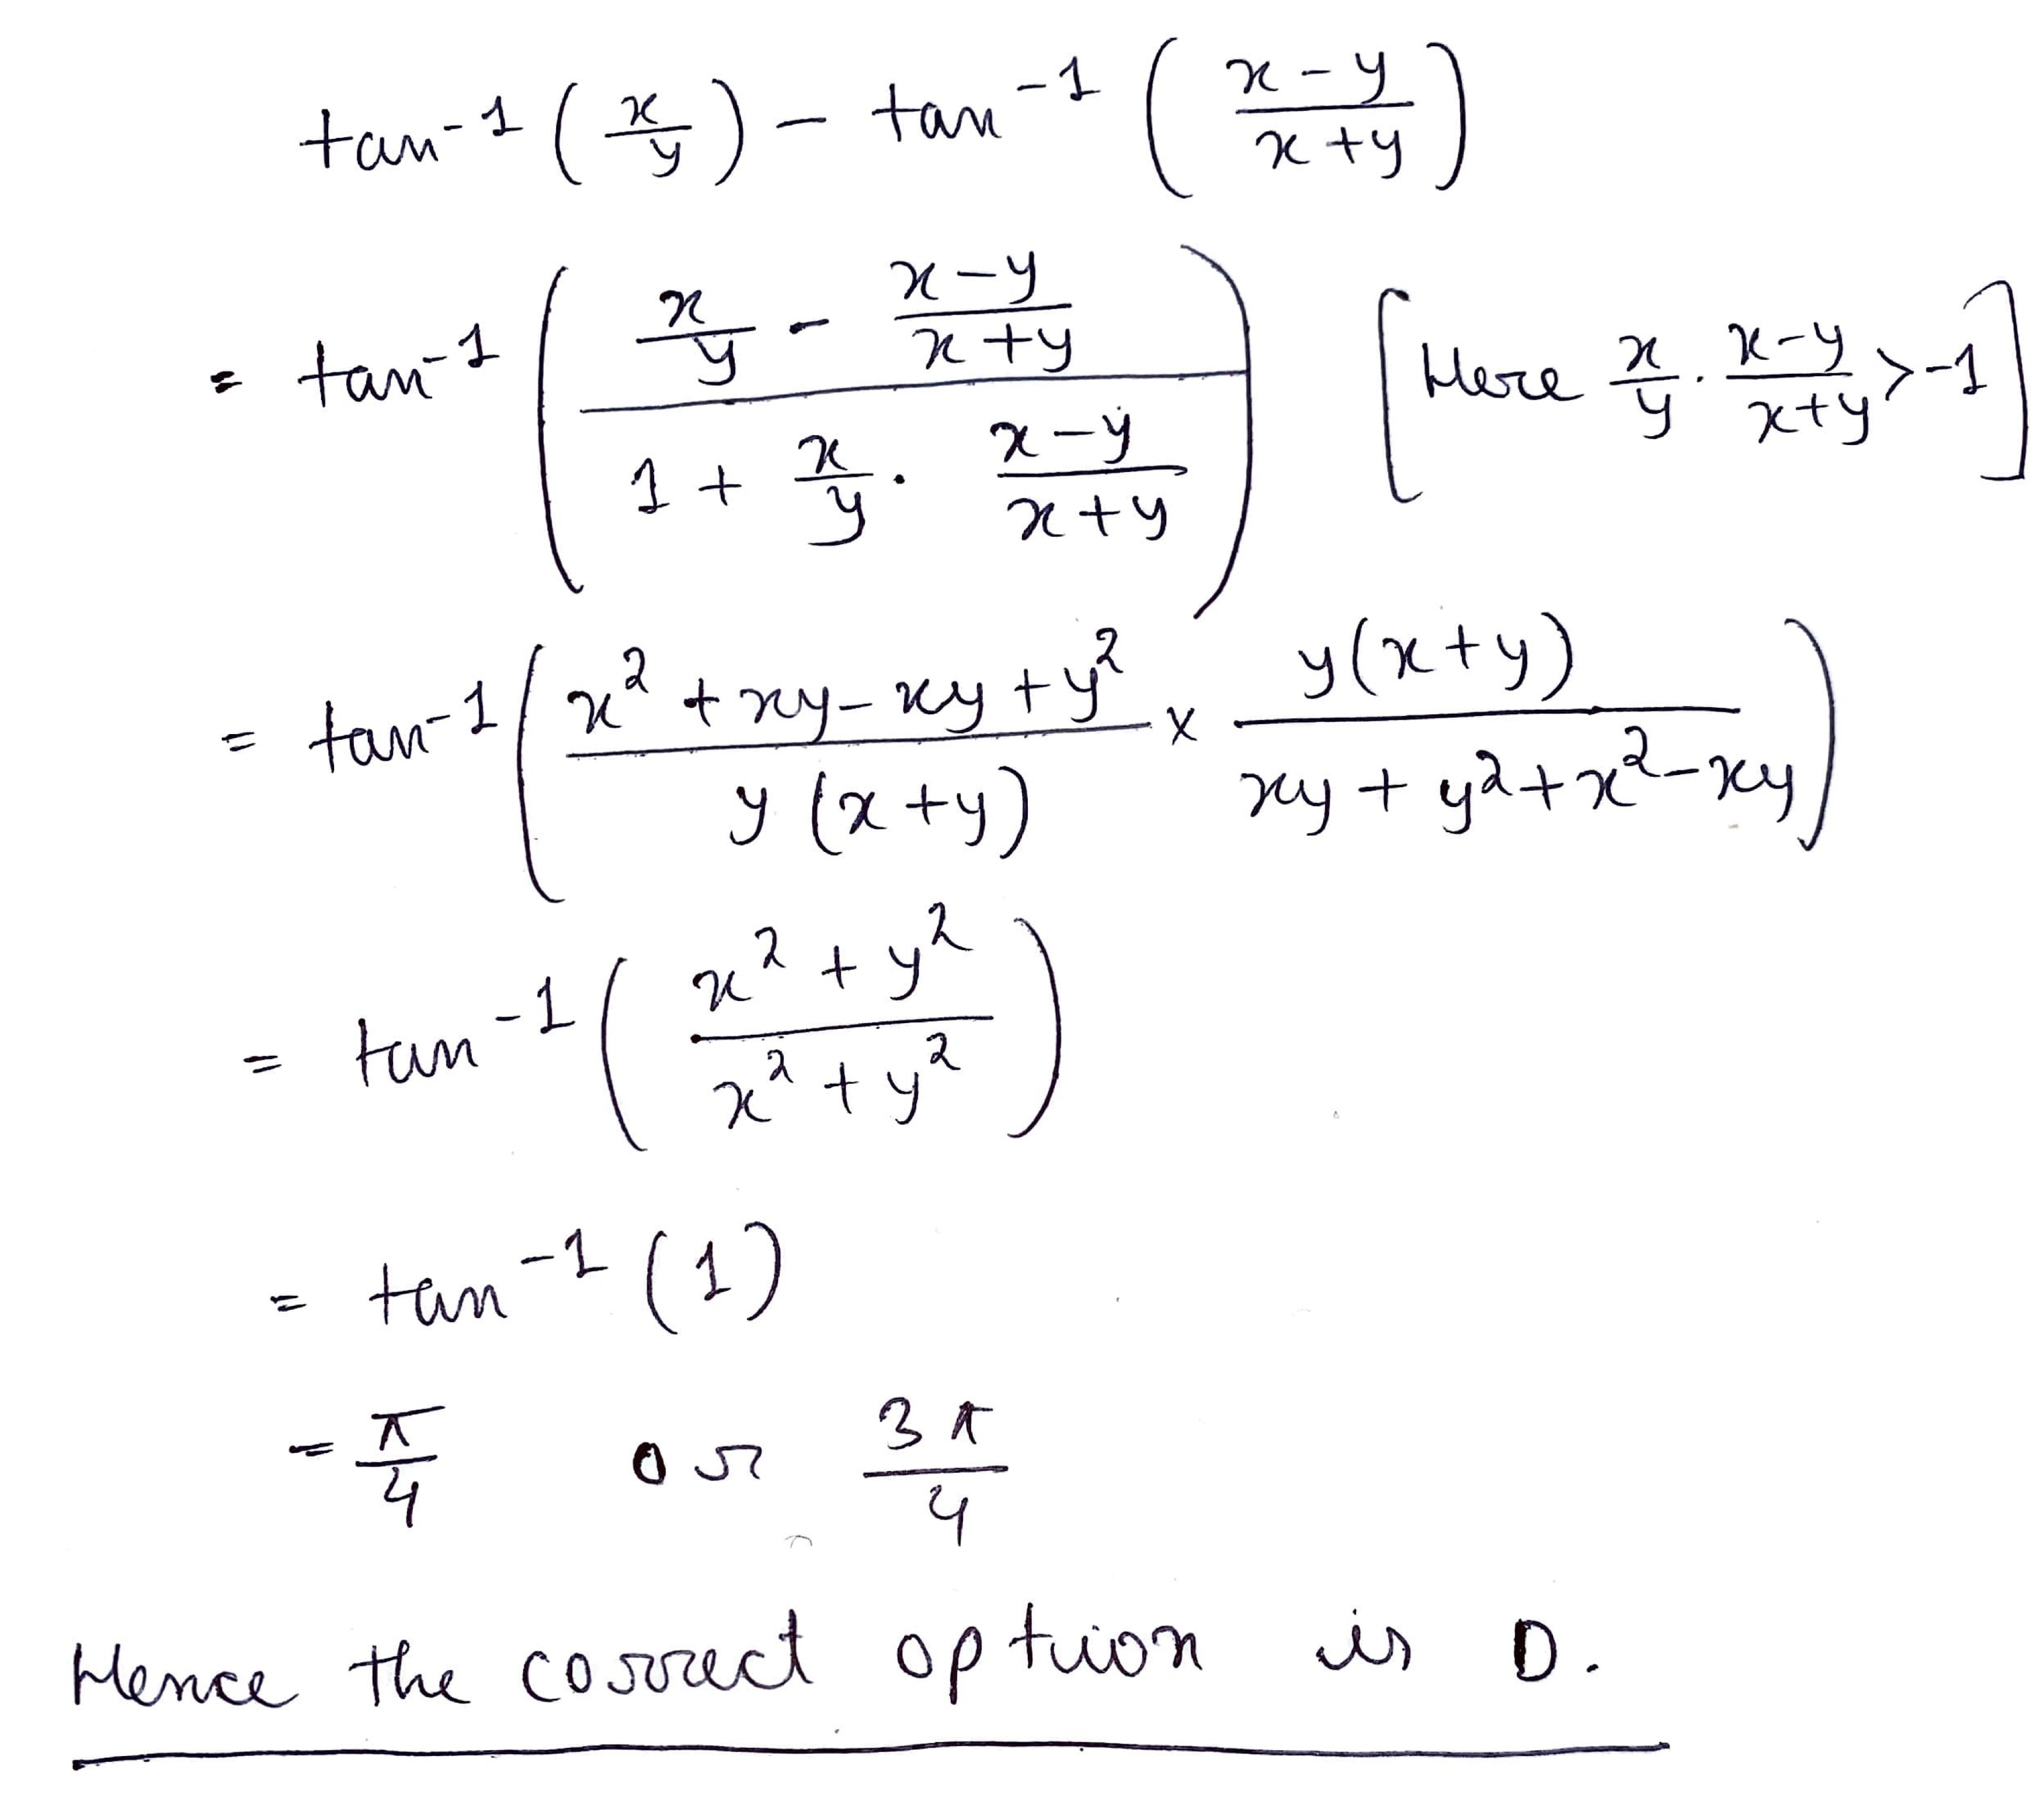 tan⁻¹ (x/y) - tan⁻¹ ((x-y)/(x+y))
= tan⁻¹ ((x/y - (x-y)/(x+y))/(1 + x/y · (x-y)/(x+y))) [Here x/y · (x-y)/(x+y) > -1]
= tan⁻¹ ((x² + xy - xy + y²)/(y(x+y)) × (y(x+y))/(xy + y² + x² - xy))
= tan⁻¹ ((x² + y²)/(x² + y²))
= tan⁻¹ (1)
= π/4 or 3π/4
Hence the correct option is D.